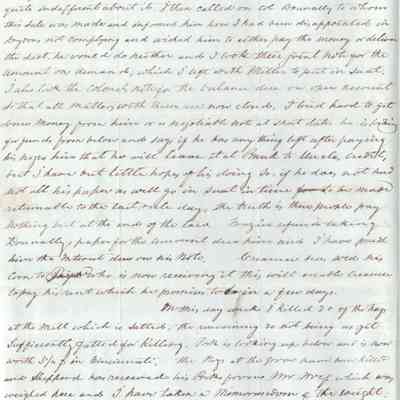 quite indifferent about it. I then called on Col Donnally to whom
this sale was made and informed him how I had been disappointed in
not complying and wished him to either pay the money or deliver
the he would do neither and I took their joint note for the
amount on demand, which I left with Miller to put in suit.
I also took the Colonel's note for the balance due on open account
so that all matters with them are now closed. I tried hard to get
some money from him or a negotiable note at short date he is looking
for funds from below and says if he has any thing left after paying
his negro hire that he will leave it at Bank to Uncle's credit,
but I have but little hopes of his doing so. if he does not
not all his paper as well go in suit in time to be made
returnable to the last rule day. the truth is these people pay
nothing but at the ends of the law. refused taking
Donnally's paper for the amount due him and I have paid
him the interest due on his Note. has sold his
Corn to who is now receiving it this will enable
to pay his rent which he promises to do in a few days.
On this day week I killed 20 of the hogs
at the Mill which is salted. the remaining 20 not being as yet
sufficiently fatted for killing. Pork is looking up below and is now
worth in Cincinnati. The Hogs at the have been killed
and Shepherd has received his Pork from Mr which was
weighed here and I have taken a Memorandum of the weight.